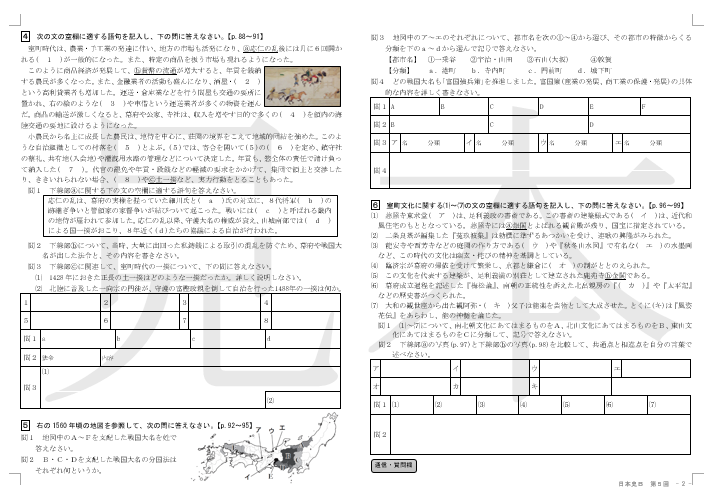 4 次の文の空欄に適する語句を記入し、下の問に答えなさい。【p.88～91】
室町時代は、農業・手工業の発達に伴い、地方の市場も活発になり、ⓐ応仁の乱後には月に６回開か
れる（ 1 ）が一般的になった。また、特定の商品を扱う市場も現れるようになった。
このように商品経済が発展して、ⓑ貨幣の流通が増大すると、年貢を銭納
する農民が多くなった。また、金融業者の活動も盛んになり、酒屋・（ 2 ）
という高利貸業者も増加した。運送・倉庫業などを行う問屋も交通の要所に
置かれ、右の絵のような（ 3 ）や車借という運送業者が多くの物資を運ん
だ。商品の輸送が激しくなると、幕府や公家、寺社は、収入を増やす目的で多くの（ 4 ）を国内の海
陸交通の要地に設けるようになった。
小農民から名主に成長した農民は、地侍を中心に、荘園の境界をこえて地域的団結を強めた。このよ
うな自治組織としての村落を（ 5 ）とよぶ。(5)では、寄合を開いて(5)の（ 6 ）を定め、鎮守社
の祭礼、共有地(入会地)や灌漑用水路の管理などについて決定した。年貢も、惣全体の責任で請け負っ
て納入した（ 7 ）。代官の罷免や年貢・段銭などの軽減の要求をかかげて、集団で領主と交渉した
り、ききいれられない場合、（ 8 ）やⓒ土一揆など、実力行動をとることもあった。
問１ 下線部ⓐに関する下の文の空欄に適する語句を答えなさい。
応仁の乱は、幕府の実権を握っていた細川氏と（ a ）氏の対立に、８代将軍（ b ）の
跡継ぎ争いと管領家の家督争いが結びついて起こった。戦いには（ c ）と呼ばれる畿内
の地侍が雇われて参加した。応仁の乱以降、守護大名の権威が衰え、山城南部では（ d ）
による国一揆がおこり、８年近く(d)たちの協議による自治が行われた。
問２ 下線部ⓑについて、当時、大量に出回った私鋳銭による取引の混乱を防ぐため、幕府や戦国大
名が出した法令と、その内容を書きなさい。
問３ 下線部ⓒに関連して、室町時代の一揆について、下の問に答えなさい。
(1) 1428年におきた正長の土一揆はどのような一揆だったか。詳しく説明しなさい。
(2) 北陸に普及した一向宗の門徒が、守護の富樫政親を倒して自治を行った1488年の一揆は何か。
1 2 3 4
5 6 7 8
問１ a b c d
問２ 法令 内容
問３ (1)
(2)
5 右の1560年頃の地図を参照して、次の問に答えなさい。【p.92～95】
問１ 地図中のＡ～Ｆを支配した戦国大名を姓で
答えなさい。
問２ Ｂ・Ｃ・Ｄを支配した戦国大名の分国法は
それぞれ何というか。
ア ウ エ
問３ 地図中のア～エのそれぞれについて、都市名を次の①～④から選び、その都市の特徴からくる
分類を下のａ～ｄから選んで記号で答えなさい。
【都市名】 ①一乗谷 ②宇治・山田 ③石山(大坂) ④敦賀
【分類】 ａ．港町 ｂ．寺内町 ｃ．門前町 ｄ．城下町
問４ どの戦国大名も「富国強兵」を推進しました。富国策(産業の発展、商工業の保護・発展)の具体
的な内容を詳しく書きなさい。
問１ A B C D E F
問２ B C D
問３ ア 名 分類 イ 名 分類 ウ 名 分類 エ 名 分類
問４
6 室町文化に関する(1)～(7)の文の空欄に適する語句を記入し、下の問に答えなさい。【p.96～99】
(1) 慈照寺東求堂（ ア ）は、足利義政の書斎である。この書斎の建築様式である（ イ ）は、近代和
風住宅のもととなっている。慈照寺にはⓐ銀閣とよばれる観音殿が残り、国宝に指定されている。
(2) 二条良基が編集した『菟玖波集』は勅撰に準ずるあつかいを受け、連歌の興隆がみられた。
(3) 龍安寺や西芳寺などの庭園の作り方である（ ウ ）や『秋冬山水図』で有名な（ エ ）の水墨画
など、この時代の文化は幽玄・侘びの精神を基調としている。
(4) 臨済宗が幕府の帰依を受けて繁栄し、京都と鎌倉に（ オ ）の制がととのえられた。
(5) この文化を代表する建築が、足利義満の別荘として建立された鹿苑寺ⓑ金閣である。
(6) 幕府成立過程を記述した『梅松論』、南朝の正統性を訴えた北畠親房の『（ カ ）』や『太平記』
などの歴史書がつくられた。
(7) 大和の観世座から出た観阿弥・（ キ ）父子は能楽を芸術として大成させた。とくに(キ)は『風姿
花伝』をあらわし、能の神髄を論じた。
問１ (1)～(7)について、南北朝文化にあてはまるものをＡ、北山文化にあてはまるものをＢ、東山文
化にあてはまるものをＣに分類して、記号で答えなさい。
問２ 下線部ⓐの写真(p.97)と下線部ⓑの写真(p.98)を比較して、共通点と相違点を自分の言葉で
述べなさい。
ア イ ウ エ
オ カ キ
問１ (1) (2) (3) (4) (5) (6) (7)
問２
通信・質問欄
日本史Ｂ 第５回 - 2 -
見本